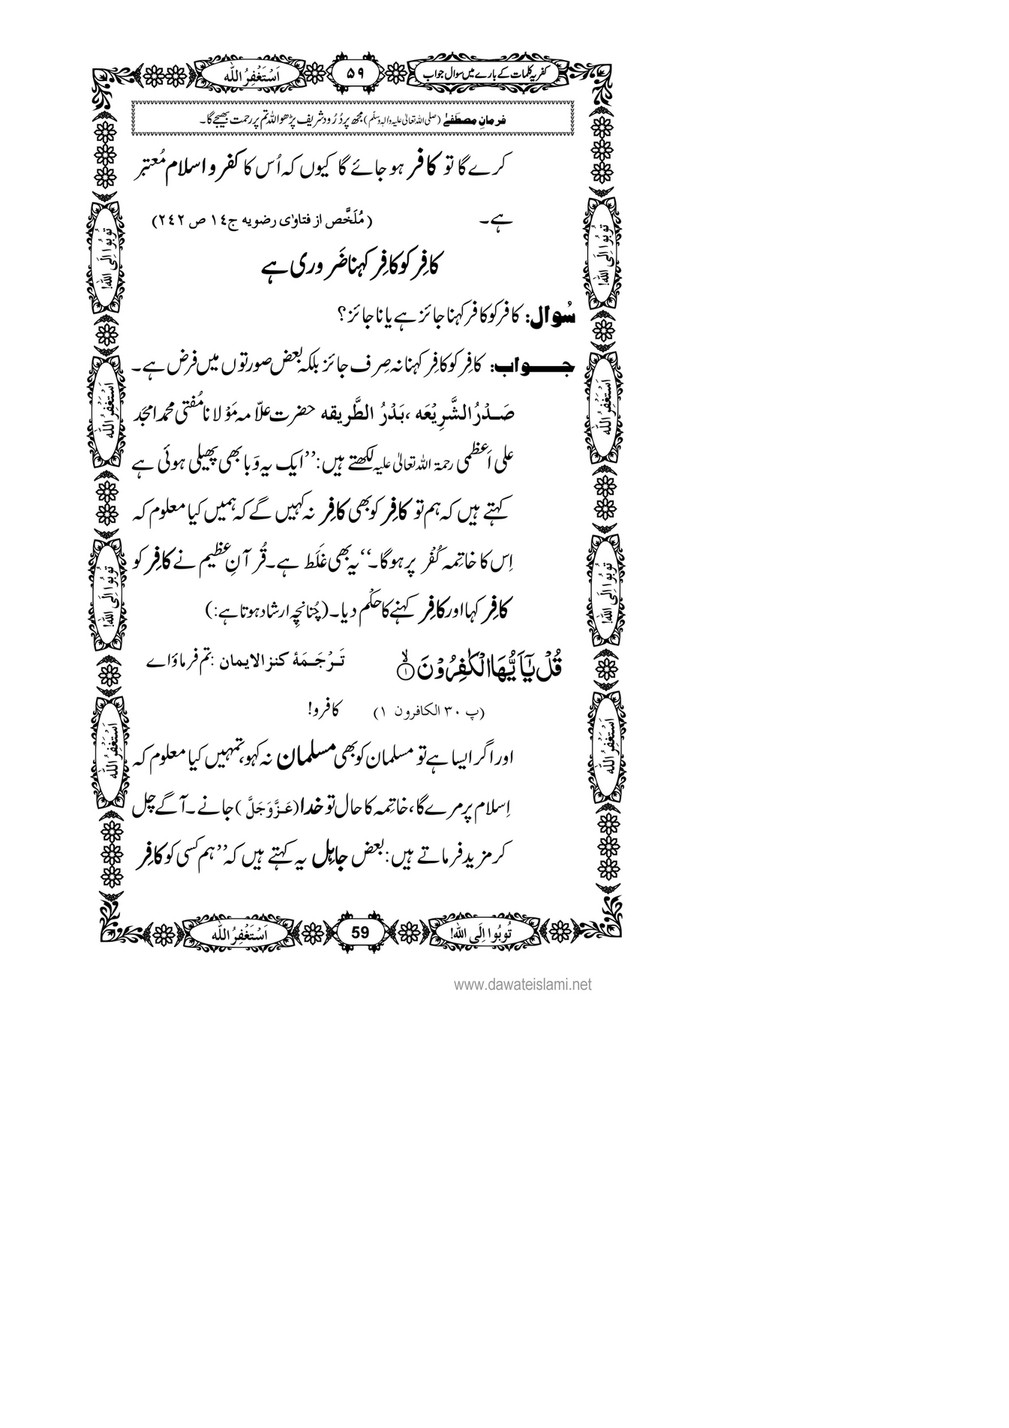 کفریہ کلمات کے بارے میں سوال جواب
۵۹
اَسْتَغْفِرُ اللّٰه
فرمانِ مصطَفٰے (صلی اللہ تعالیٰ علیہ والہ وسلّم) مجھ پر دُرُود شریف پڑھو اللہ تم پر رحمت بھیجے گا۔
کرے گا تو کافر ہو جائے گا کیوں کہ اُس کا کفر و اسلام مُعتبر
ہے۔ (مُلَخَّص از فتاوٰی رضویہ ج۱٤ ص ۲٤۲)
کافِر کو کافِر کہنا ضَروری ہے
سُوال: کافر کو کافر کہنا جائز ہے یا ناجائز؟
جـــواب: کافِر کو کافِر کہنا نہ صِرف جائز بلکہ بعض صورتوں میں فرض ہے۔
صَـدْرُ الشَّرِیْعَہ ،بَدْرُ الطَّریقہ حضرت علّامہ مَوْلانا مُفتی محمد امجَد
علی اَعظمی رحمۃ اللہ تعالیٰ علیہ لکھتے ہیں: ’’ایک یہ وَبا بھی پھیلی ہوئی ہے
کہتے ہیں کہ ہم تو کافِر کو بھی کافِر نہ کہیں گے کہ ہمیں کیا معلوم کہ
اِس کا خاتِمہ کُفْر پر ہوگا۔‘‘ یہ بھی غَلَط ہے۔ قُرآنِ عظیم نے کافِر کو
کافِر کہا اور کافِر کہنے کا حکْم دیا۔ (چُنانچِہ ارشاد ہوتا ہے:)
قُلْ یٰۤاَیُّهَا الْكٰفِرُوْنَۙ۝۱ تَـرْجَـمَۂ کنز الایمان :تم فرماؤ اے
(پ ۳۰ الکافرون ۱) کافرو!
اور اگر ایسا ہے تو مسلمان کو بھی مسلمان نہ کہو، تمہیں کیا معلوم کہ
اِسلام پر مرے گا، خاتِمہ کا حال تو خدا (عَـزَّوَجَلَّ) جانے۔ آگے چل
کر مزید فرماتے ہیں: بعض جاہِل یہ کہتے ہیں کہ ’’ہم کسی کو کافِر
تُوبُوا اِلَی اللّٰه!
اَسْتَغْفِرُ اللّٰه
تُوبُوا اِلَی اللّٰه!
اَسْتَغْفِرُ اللّٰه
تُوبُوا اِلَی اللّٰه!
اَسْتَغْفِرُ اللّٰه
تُوبُوا اِلَی اللّٰه!
اَسْتَغْفِرُ اللّٰه
تُوبُوا اِلَی اللّٰه!
59
اَسْتَغْفِرُ اللّٰه
www.dawateislami.net